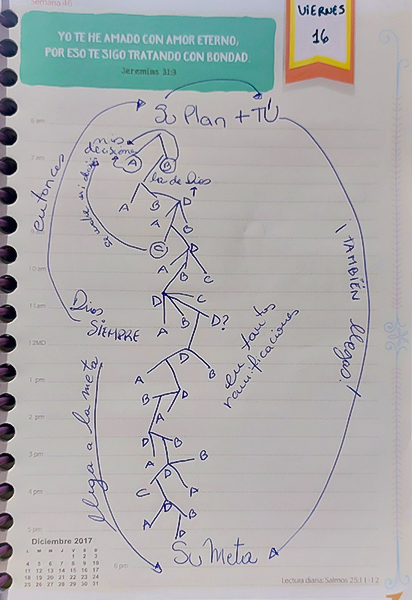 Semana 46
YO TE HE AMADO CON AMOR ETERNO,
POR ESO TE SIGO TRATANDO CON BONDAD.
Jeremías 31:3
VIERNES
16
Su Plan + TÚ
entonces
mis
decisiones
A
B
la de Dios
A
B
D
A
B
C
D
A
B
C
D
C
A
B
D?
Dios
SIEMPRE
llega a la meta
en tantas
ramificaciones
¡TAMBIÉN llegas!
D
A
B
B
D
A
D
B
A
D
B
C
D
A
A
B
D
Su Meta
6 am
7 am
9 am
10 am
11 am
12MD
1 pm
2 pm
3 pm
4 pm
5 pm
6 pm
Diciembre 2017
L M M J V S D
1 2 3
4 5 6 7 8 9 10
11 12 13 14 15 16 17
18 19 20 21 22 23 24
25 26 27 28 29 30 31
Lectura diaria: Salmos 25:11-12